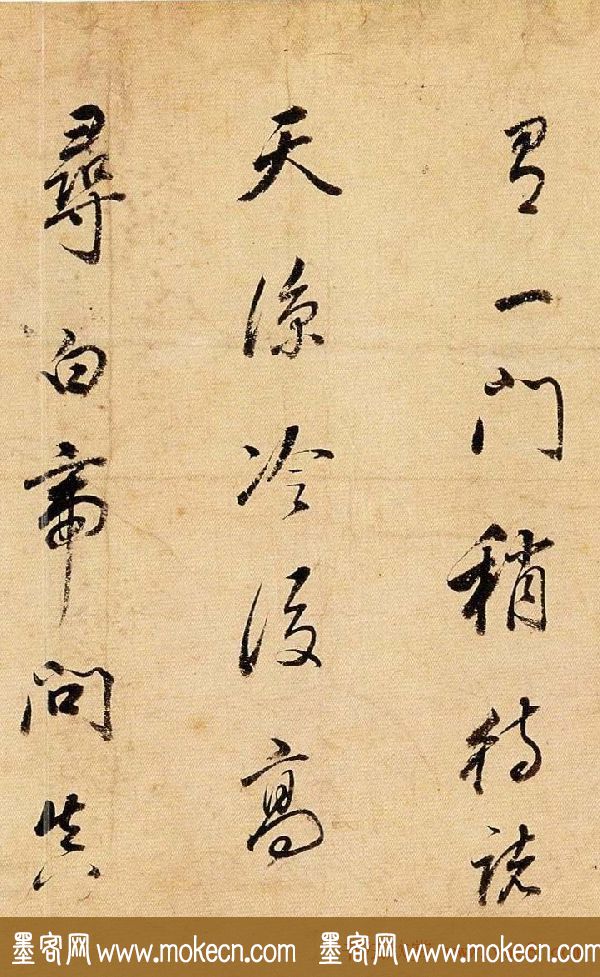 有一門稍待
天涼冷後高
尋白帝問真
墨客网 www.mokecn.com 墨客网 www.mokecn.com